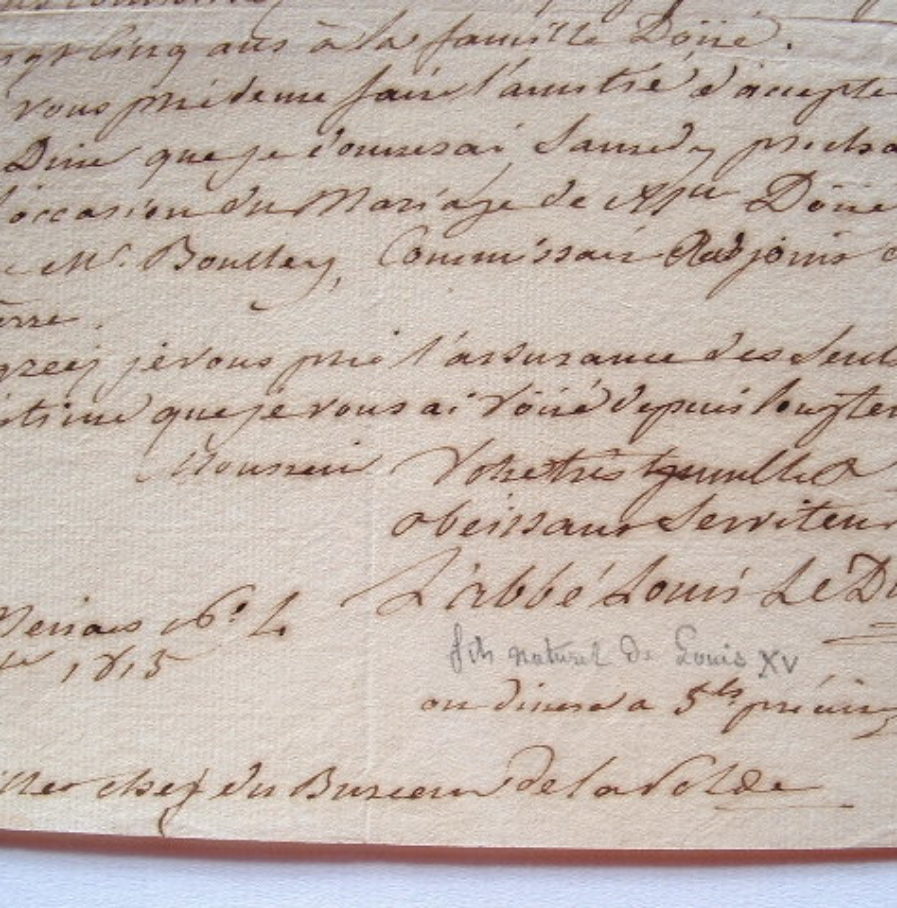 cinq ans à la famille Döüé.
vous prie de me faire l'amitié d'accepte
Diné que je donnerai Samedy procha
l'occasion du Mariage de Mlle Döüé
Mr. Boulley, Commissaire Adjoint
erre.
gréez je vous prie l'assurance des Sent
stime que je vous ai Voüé depuis longtem
Monsieur Votre très humble &
obeissant Serviteur
L'abbé Louis Le Du
16. 
1815
fils naturel de Louis XV
on dinera a 5 h précis
chef du Bureau De la Solde